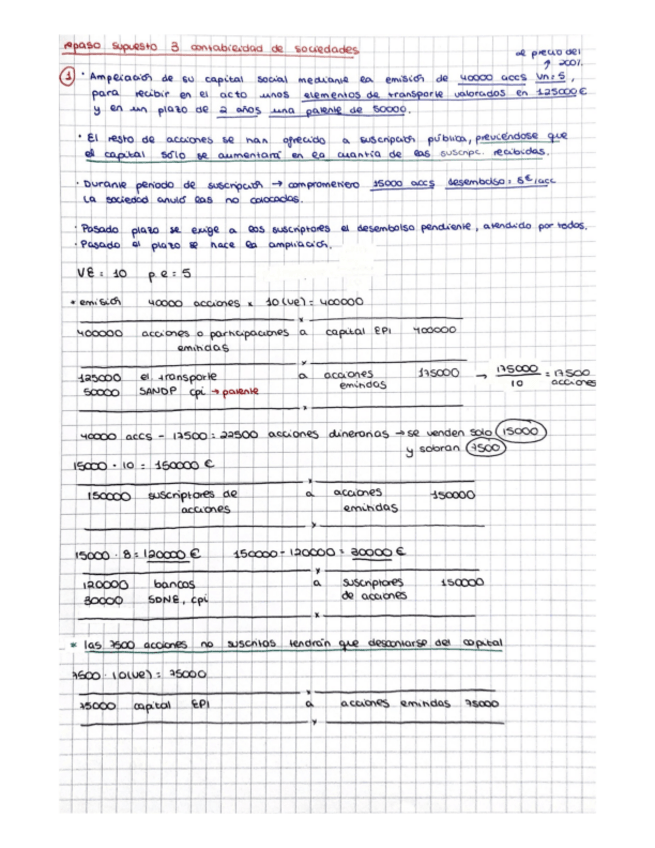 repaso supuesto 3 contabilidad de sociedades
al precio del
↑ 200%
① · Ampliación de su capital social mediante la emisión de 40000 accs Vn=5,
para recibir en el acto unos elementos de transporte valorados en 125000€
y en un plazo de 2 años una patente de 50000.
· El resto de acciones se han ofrecido a suscripción pública, previéndose que
el capital sólo se aumentará en la cuantía de las suscripc. recibidas.
· Durante período de suscripción → comprometiero 15000 accs desembolso = 8€/acc
La sociedad anuló las no colocadas.
· Pasado plazo se exige a los suscriptores el desembolso pendiente, atendido por todos.
· Pasado el plazo se hace la ampliación.
VE = 10 p.e = 5
* emisión 40000 acciones × 10 (ve) = 400000
400000 acciones o participaciones a capital EPI 400000
emitidas
125000 el transporte a acciones 175000 → 175000/10 = 17500 acciones
50000 SANDP cpi → patente emitidas
40000 accs - 17500 = 22500 acciones dinerarias → se venden solo 15000
y sobran 7500
15000 · 10 = 150000 €
150000 suscriptores de a acciones 150000
acciones emitidas
15000 · 8 = 120000 € 150000 - 120000 = 30000 €
120000 bancos a suscriptores 150000
30000 SDNE, cpi de acciones
* las 7500 acciones no suscritas tendrán que descontarse del capital
7500 · 10(ve) = 75000
75000 capital EPI a acciones emitidas 75000